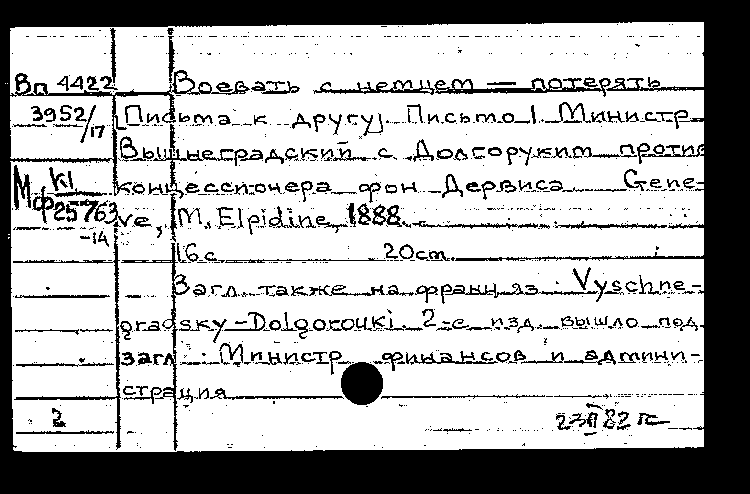 Вп 4422 Воевать с немцем — потерять
3952/17 [Письма к другу]. Письмо 1. Министр
Вышнеградский с Долгоруким против
Мф К1 концессионера фон Дервиса Gene-
25763 ve, M. Elpidine 1888.
-14
16 с. 20 cm.
Загл. также на франц яз: Vyschne-
gradsky-Dolgorouki. 2-е изд. вышло под
загл.: Министр финансов и админи-
страция
2 82